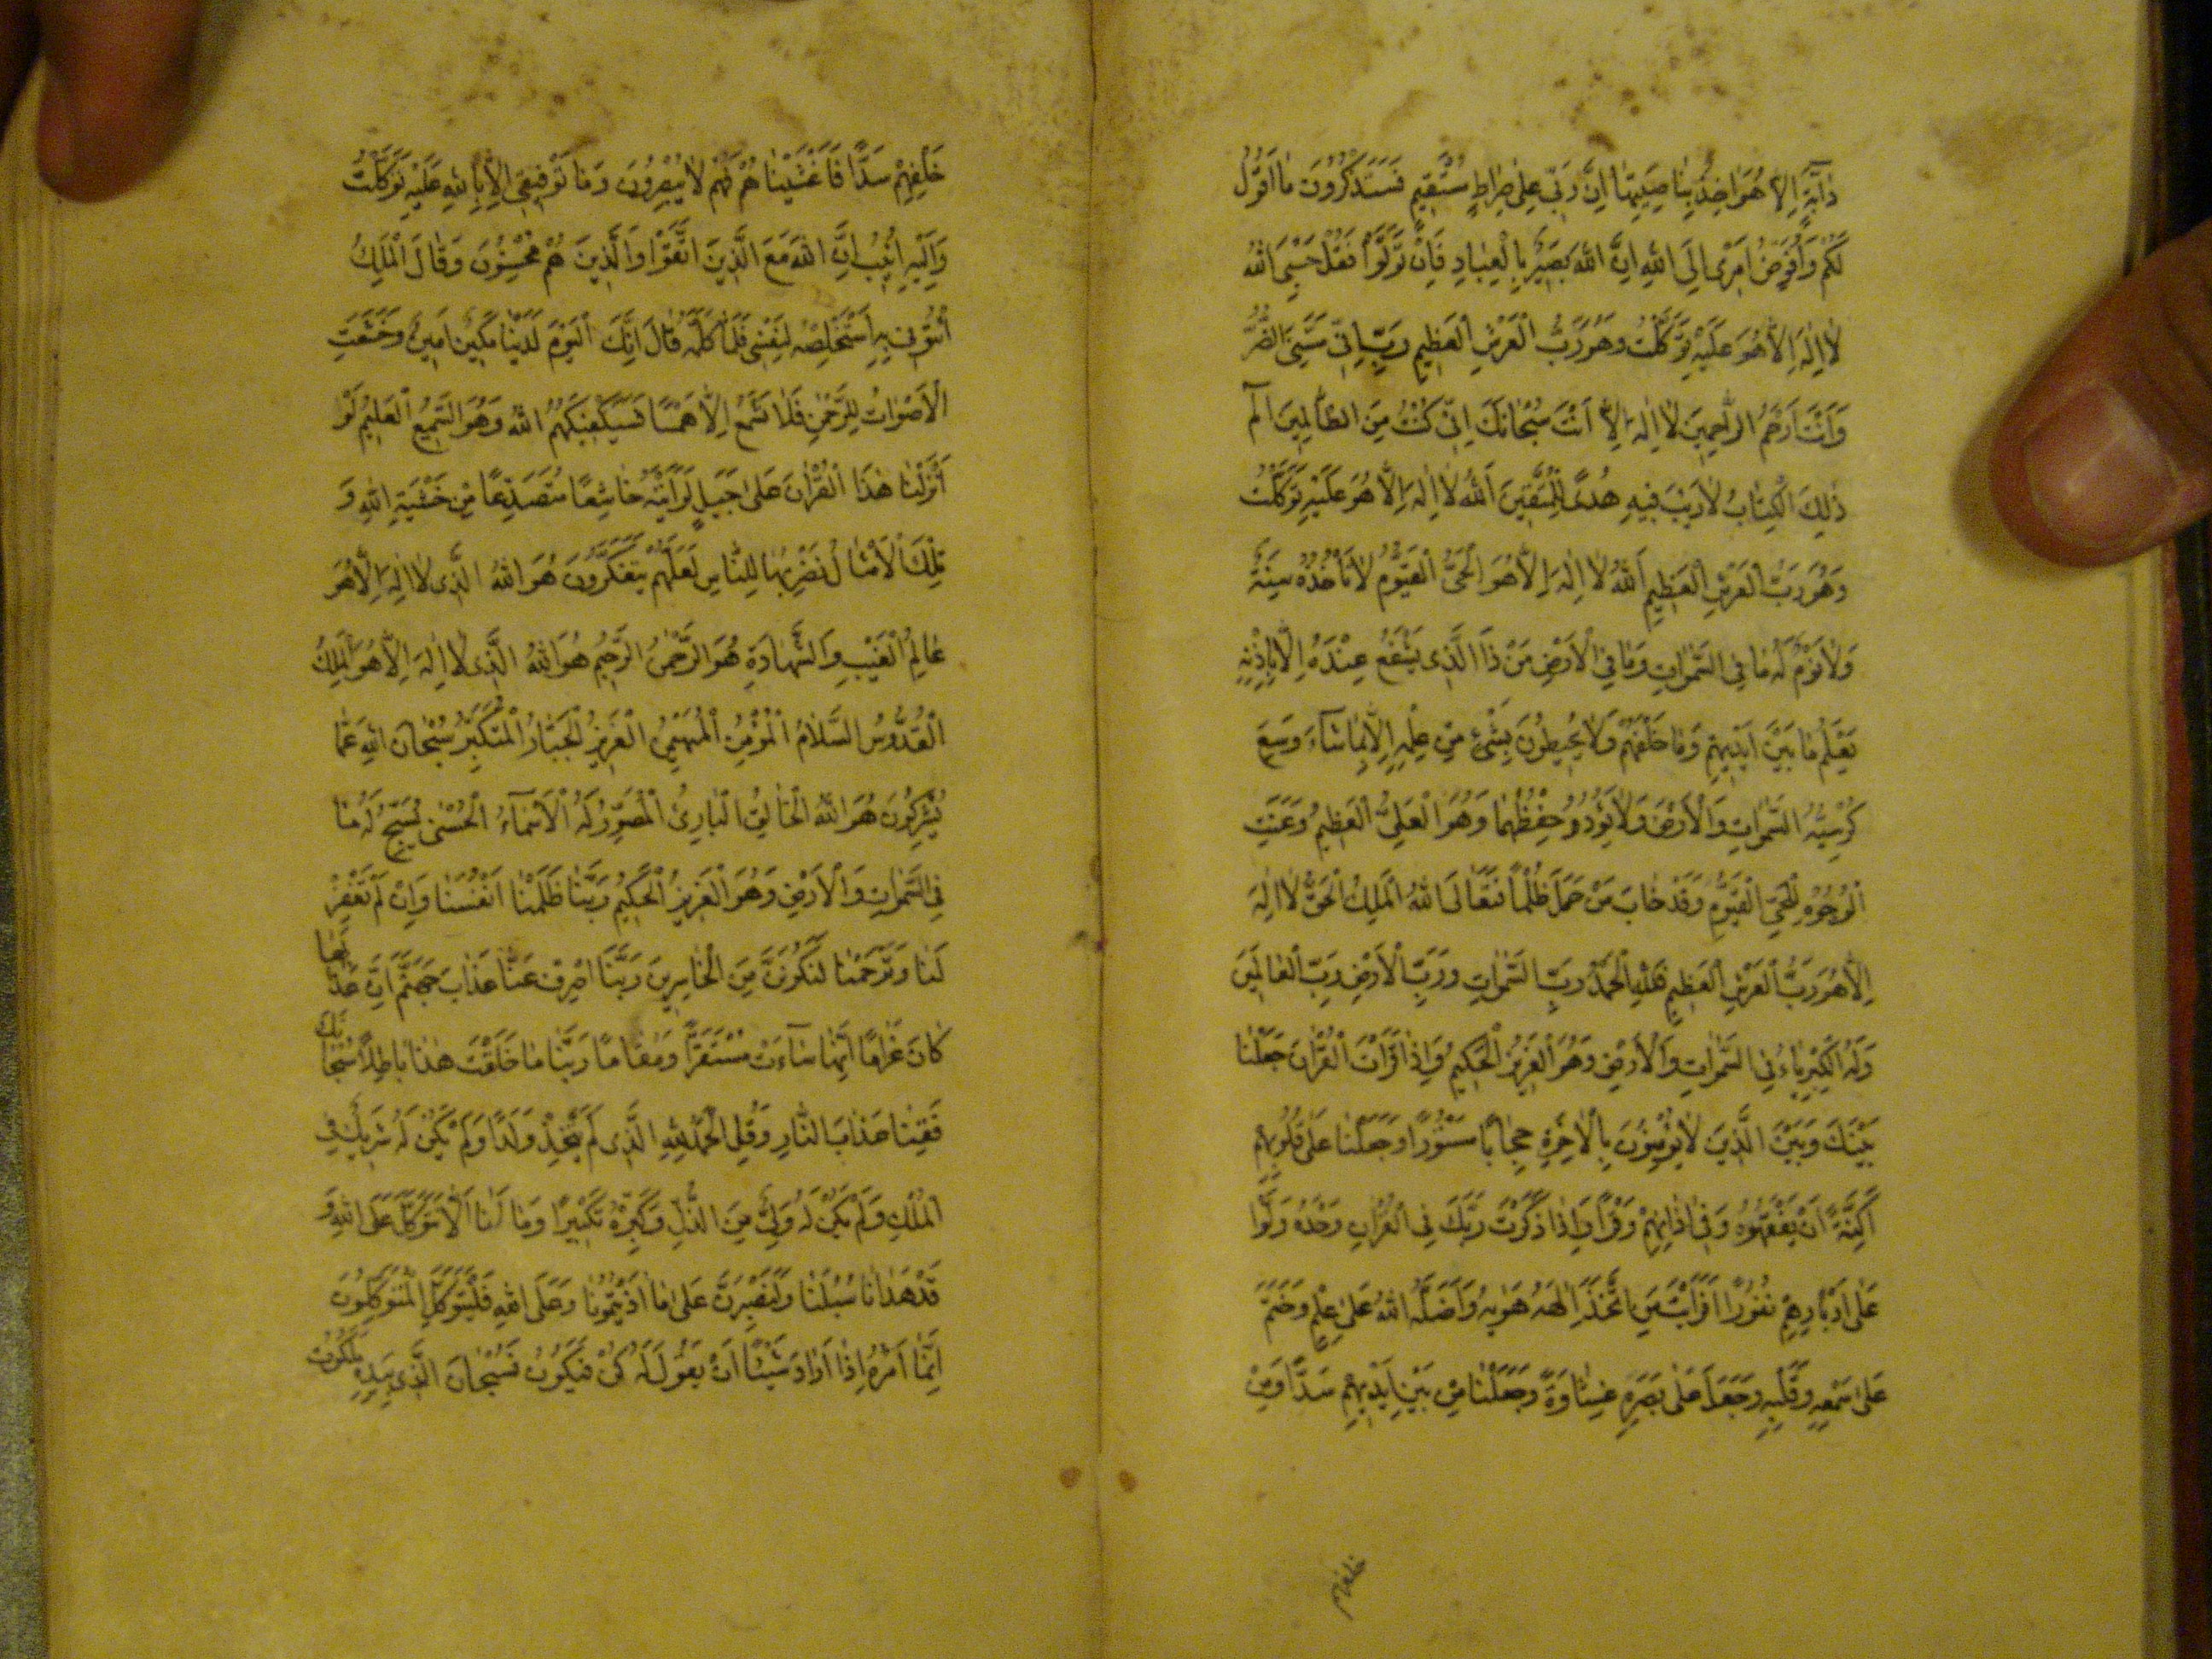 دَابَّةٍ اِلَّا هُوَ اٰخِذٌ بِنَاصِيَتِهَا اِنَّ رَبِّي عَلىٰ صِرَاطٍ مُسْتَقِيمٍ فَسَتَذْكُرُونَ مَا اَقُولُ
لَكُمْ وَاُفَوِّضُ اَمْرِي اِلَى اللهِ اِنَّ اللهَ بَصِيرٌ بِالْعِبَادِ فَاِنْ تَوَلَّوْا فَقُلْ حَسْبِيَ اللهُ
لَا اِلٰهَ اِلَّا هُوَ عَلَيْهِ تَوَكَّلْتُ وَهُوَ رَبُّ الْعَرْشِ الْعَظِيمِ رَبِّ اِنِّي مَسَّنِيَ الضُّرُّ
وَاَنْتَ اَرْحَمُ الرَّاحِمِينَ لَا اِلٰهَ اِلَّا اَنْتَ سُبْحَانَكَ اِنِّي كُنْتُ مِنَ الظَّالِمِينَ الٓمٓ
ذٰلِكَ الْكِتَابُ لَا رَيْبَ فِيهِ هُدًى لِلْمُتَّقِينَ اَللهُ لَا اِلٰهَ اِلَّا هُوَ عَلَيْهِ تَوَكَّلْتُ
وَهُوَ رَبُّ الْعَرْشِ الْعَظِيمِ اَللهُ لَا اِلٰهَ اِلَّا هُوَ الْحَيُّ الْقَيُّومُ لَا تَأْخُذُهُ سِنَةٌ
وَلَا نَوْمٌ لَهُ مَا فِي السَّمٰوَاتِ وَمَا فِي الْاَرْضِ مَنْ ذَا الَّذِي يَشْفَعُ عِنْدَهُ اِلَّا بِاِذْنِهِ
يَعْلَمُ مَا بَيْنَ اَيْدِيهِمْ وَمَا خَلْفَهُمْ وَلَا يُحِيطُونَ بِشَيْءٍ مِنْ عِلْمِهِ اِلَّا بِمَا شَاءَ وَسِعَ
كُرْسِيُّهُ السَّمٰوَاتِ وَالْاَرْضَ وَلَا يَؤُدُهُ حِفْظُهُمَا وَهُوَ الْعَلِيُّ الْعَظِيمُ وَعَنَتِ
الْوُجُوهُ لِلْحَيِّ الْقَيُّومِ وَقَدْ خَابَ مَنْ حَمَلَ ظُلْمًا فَتَعَالَى اللهُ الْمَلِكُ الْحَقُّ لَا اِلٰهَ
اِلَّا هُوَ رَبُّ الْعَرْشِ الْعَظِيمِ فَلِلّٰهِ الْحَمْدُ رَبِّ السَّمٰوَاتِ وَرَبِّ الْاَرْضِ رَبِّ الْعَالَمِينَ
وَلَهُ الْكِبْرِيَاءُ فِي السَّمٰوَاتِ وَالْاَرْضِ وَهُوَ الْعَزِيزُ الْحَكِيمُ وَاِذَا قَرَأْتَ الْقُرْاٰنَ جَعَلْنَا
بَيْنَكَ وَبَيْنَ الَّذِينَ لَا يُؤْمِنُونَ بِالْاٰخِرَةِ حِجَابًا مَسْتُورًا وَجَعَلْنَا عَلىٰ قُلُوبِهِمْ
اَكِنَّةً اَنْ يَفْقَهُوهُ وَفِي اٰذَانِهِمْ وَقْرًا وَاِذَا ذَكَرْتَ رَبَّكَ فِي الْقُرْاٰنِ وَحْدَهُ وَلَّوْا
عَلىٰ اَدْبَارِهِمْ نُفُورًا اَفَرَاَيْتَ مَنِ اتَّخَذَ اِلٰهَهُ هَوٰيهُ وَاَضَلَّهُ اللهُ عَلىٰ عِلْمٍ وَخَتَمَ
عَلىٰ سَمْعِهِ وَقَلْبِهِ وَجَعَلَ عَلىٰ بَصَرِهِ غِشَاوَةً وَجَعَلْنَا مِنْ بَيْنِ اَيْدِيهِمْ سَدًّا وَمِنْ
خلفهم
خَلْفِهِمْ سَدًّا فَاَغْشَيْنَاهُمْ فَهُمْ لَا يُبْصِرُونَ وَمَا تَوْفِيقِي اِلَّا بِاللهِ عَلَيْهِ تَوَكَّلْتُ
وَاِلَيْهِ اُنِيبُ اِنَّ اللهَ مَعَ الَّذِينَ اتَّقَوْا وَالَّذِينَ هُمْ مُحْسِنُونَ وَقَالَ الْمَلِكُ
ائْتُونِي بِهِ اَسْتَخْلِصْهُ لِنَفْسِي فَلَمَّا كَلَّمَهُ قَالَ اِنَّكَ الْيَوْمَ لَدَيْنَا مَكِينٌ اَمِينٌ وَخَشَعَتِ
الْاَصْوَاتُ لِلرَّحْمٰنِ فَلَا تَسْمَعُ اِلَّا هَمْسًا فَسَيَكْفِيكَهُمُ اللهُ وَهُوَ السَّمِيعُ الْعَلِيمُ لَوْ
اَنْزَلْنَا هٰذَا الْقُرْاٰنَ عَلىٰ جَبَلٍ لَرَاَيْتَهُ خَاشِعًا مُتَصَدِّعًا مِنْ خَشْيَةِ اللهِ وَ
تِلْكَ الْاَمْثَالُ نَضْرِبُهَا لِلنَّاسِ لَعَلَّهُمْ يَتَفَكَّرُونَ هُوَ اللهُ الَّذِي لَا اِلٰهَ اِلَّا هُوَ
عَالِمُ الْغَيْبِ وَالشَّهَادَةِ هُوَ الرَّحْمٰنُ الرَّحِيمُ هُوَ اللهُ الَّذِي لَا اِلٰهَ اِلَّا هُوَ الْمَلِكُ
الْقُدُّوسُ السَّلَامُ الْمُؤْمِنُ الْمُهَيْمِنُ الْعَزِيزُ الْجَبَّارُ الْمُتَكَبِّرُ سُبْحَانَ اللهِ عَمَّا
يُشْرِكُونَ هُوَ اللهُ الْخَالِقُ الْبَارِئُ الْمُصَوِّرُ لَهُ الْاَسْمَاءُ الْحُسْنىٰ يُسَبِّحُ لَهُ مَا
فِي السَّمٰوَاتِ وَالْاَرْضِ وَهُوَ الْعَزِيزُ الْحَكِيمُ رَبَّنَا ظَلَمْنَا اَنْفُسَنَا وَاِنْ لَمْ تَغْفِرْ
لَنَا وَتَرْحَمْنَا لَنَكُونَنَّ مِنَ الْخَاسِرِينَ رَبَّنَا اصْرِفْ عَنَّا عَذَابَ جَهَنَّمَ اِنَّ عَذَابَهَا
كَانَ غَرَامًا اِنَّهَا سَاءَتْ مُسْتَقَرًّا وَمُقَامًا رَبَّنَا مَا خَلَقْتَ هٰذَا بَاطِلًا سُبْحَانَكَ
فَقِنَا عَذَابَ النَّارِ وَقُلِ الْحَمْدُ لِلّٰهِ الَّذِي لَمْ يَتَّخِذْ وَلَدًا وَلَمْ يَكُنْ لَهُ شَرِيكٌ فِي
الْمُلْكِ وَلَمْ يَكُنْ لَهُ وَلِيٌّ مِنَ الذُّلِّ وَكَبِّرْهُ تَكْبِيرًا وَمَا لَنَا اَلَّا نَتَوَكَّلَ عَلَى اللهِ وَ
قَدْ هَدَانَا سُبُلَنَا وَلَنَصْبِرَنَّ عَلىٰ مَا اٰذَيْتُمُونَا وَعَلَى اللهِ فَلْيَتَوَكَّلِ الْمُتَوَكِّلُونَ
اِنَّمَا اَمْرُهُ اِذَا اَرَادَ شَيْئًا اَنْ يَقُولَ لَهُ كُنْ فَيَكُونُ فَسُبْحَانَ الَّذِي بِيَدِهِ مَلَكُوتُ